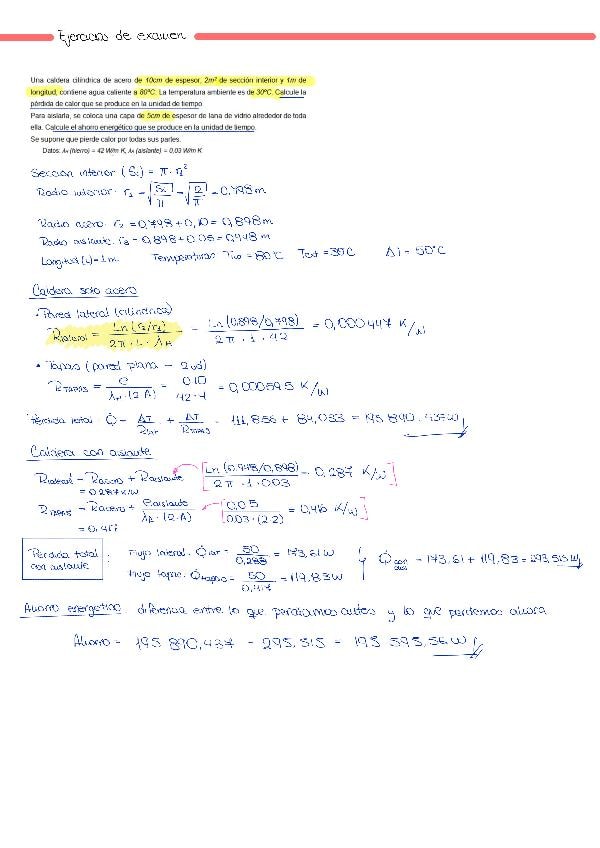 Ejercicios de examen
Una caldera cilíndrica de acero de 10cm de espesor, 2m² de sección interior y 1m de
longitud, contiene agua caliente a 80ºC. La temperatura ambiente es de 30ºC. Calcule la
pérdida de calor que se produce en la unidad de tiempo
Para aislarla, se coloca una capa de 5cm de espesor de lana de vidrio alrededor de toda
ella. Calcule el ahorro energético que se produce en la unidad de tiempo.
Se supone que pierde calor por todas sus partes.
Datos: λH (hierro) = 42 W/m K, λA (aislante) = 0,03 W/m K
Sección interior (Si) = π · r²
Radio interior: r1 = √Si/π = √2/π = 0,798 m
Radio acero: r2 = 0,798 + 0,10 = 0,898 m
Radio aislante: r3 = 0,898 + 0,05 = 0,948 m
Longitud (L) = 1m. Temperaturas Tint = 80ºC Text = 30ºC ΔT = 50ºC
Caldera solo acero
• Pared lateral (cilíndrica)
Rlateral = Ln (r2/r1) / 2π · L · λA = Ln (0,898/0,798) / 2π · 1 · 42 = 0,000447 K/W
• Tapas (pared plana - 2ud)
RTAPAS = e / λA · (2·A) = 0.10 / 42 · 4 = 0,000595 K/W
Pérdida total: Q̇ = ΔT/Rlat + ΔT/RTAPAS = 111,856 + 84,033 = 195 890,437W
Caldera con aislante
Rlateral = Racero + Raislante [Ln (0.948/0,898) / 2π · 1 · 0.03 = 0,287 K/W]
= 0.287 K/W
RTAPAS = Racero + Raislante / λA · (2·A) [0,05 / 0.03 · (2·2) = 0,416 K/W]
= 0.417
Pérdida total con aislante : Flujo lateral: Q̇lat = 50 / 0,288 = 173,61W } Q̇ con aisl = 173,61 + 119,83 = 293,515W
Flujo tapas: Q̇tapas = 50 / 0,417 = 119,83W
Ahorro energético: diferencia entre lo que perdíamos antes y lo que perdemos ahora
Ahorro = 195 890,437 - 295,515 = 195 595,56W